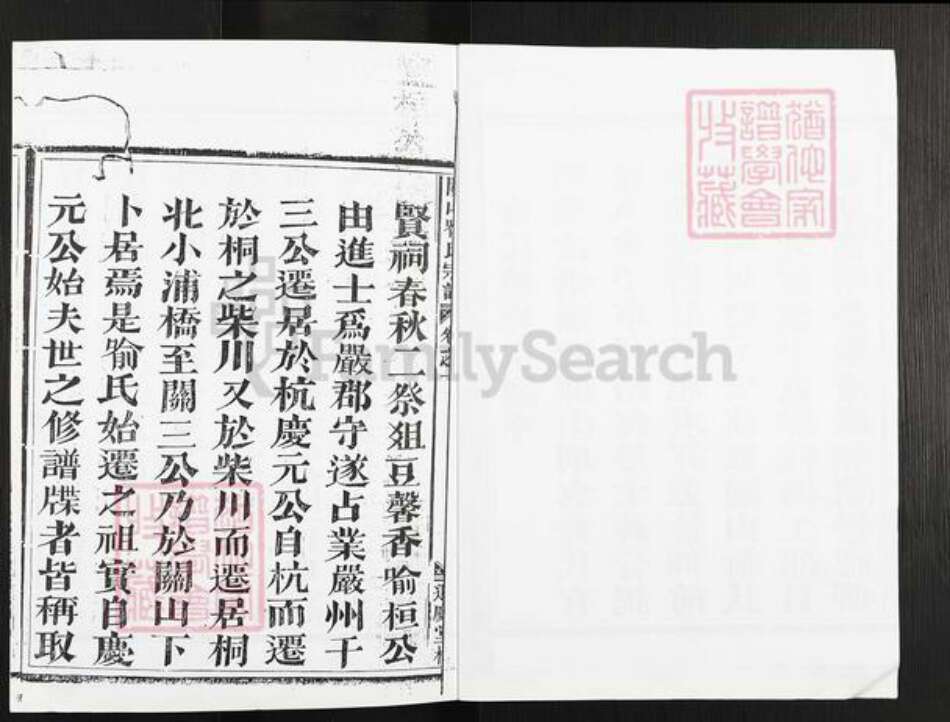 賢祠春秋二祭爼豆馨香喻桓公
由進士爲嚴郡守遂占業嚴州千
三公遷居於杭慶元公自杭而遷
於桐之柴川又於柴川而遷居桐
北小浦橋至關三公乃於關山下
卜居焉是喻氏始遷之祖實自慶
元公始夫世之修譜牒者皆稱取
FamilySearch